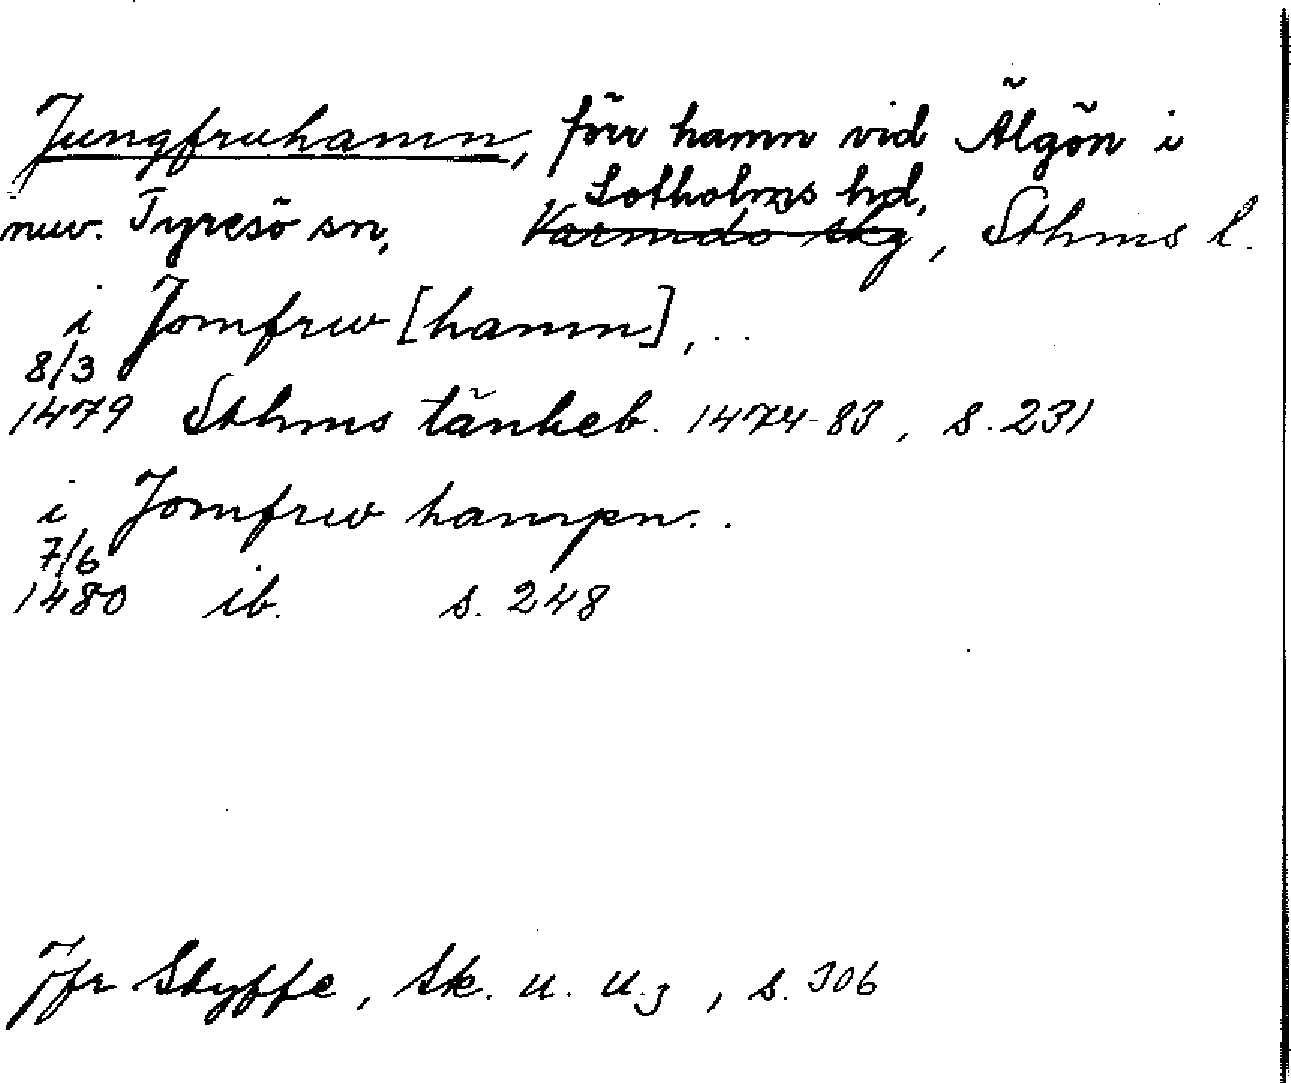 Jungfruhamn, förr hamn vid Älgön i
nuv. Tyresö sn, Sotholms hd,
Värmdö skg, Sthms l.
i Jomfrw [hamn], . .
8/3
1479 Sthms tänkeb. 1474-83, s. 231
i Jomfrw hampn. .
7/6
1480 ib. s. 248
Jfr Styffe, Sk. u. u.3, s. 306